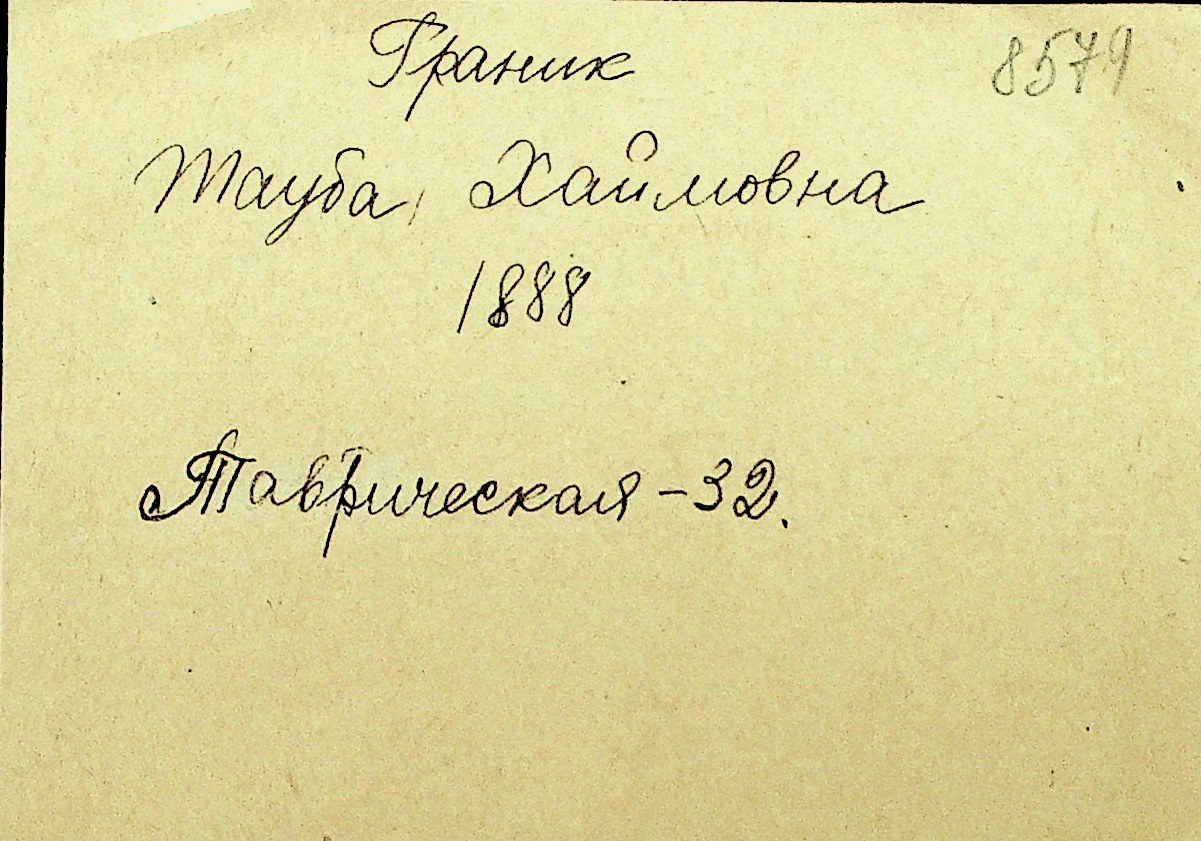 Граник 8579
Тауба, Хаймовна
1888
Таврическая - 32.